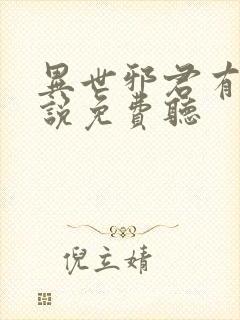 異世邪君有
說免費聽
倪立婧